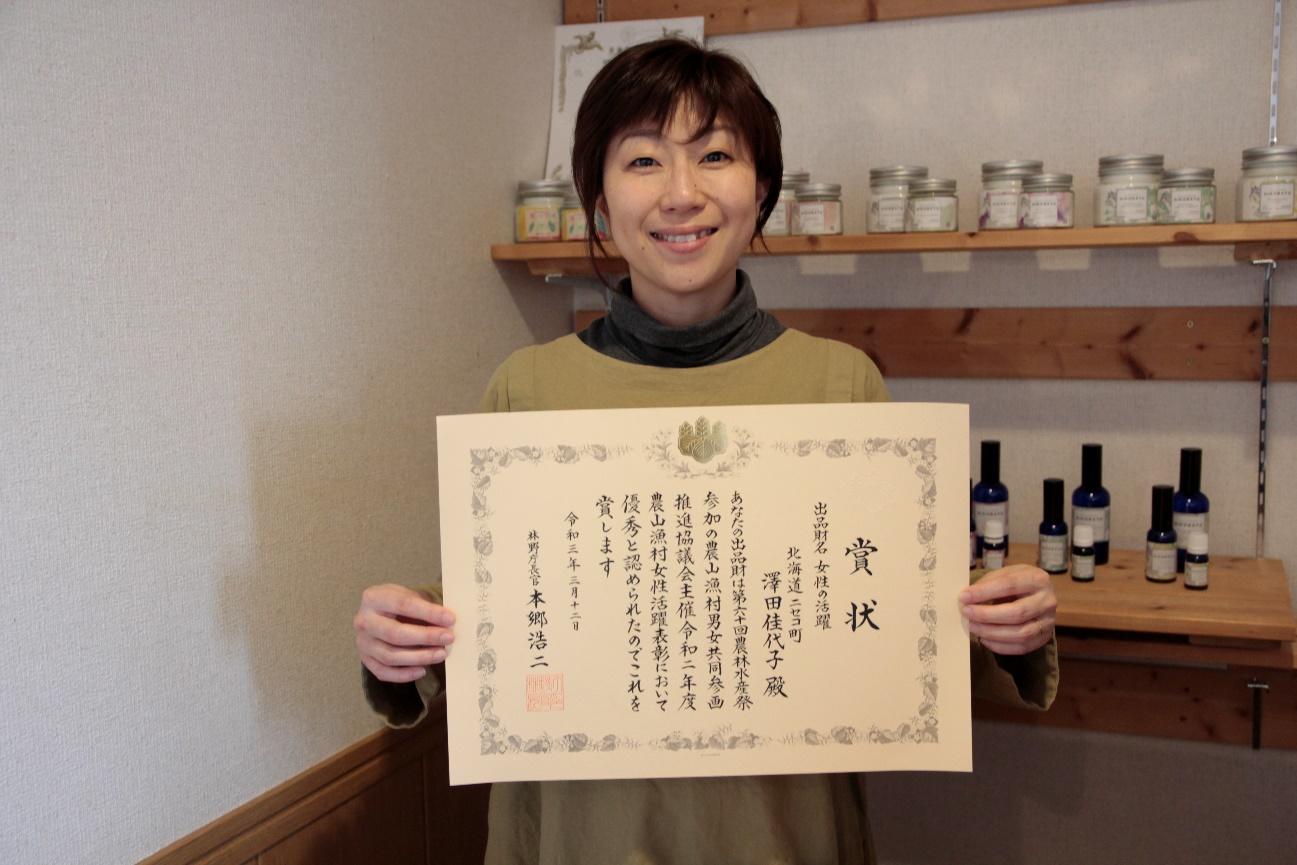 賞状
出品財名 女性の活躍
北海道ニセコ町
澤田佳代子殿
あなたの出品財は第六十回農林水産祭
参加の農山漁村男女共同参画
推進協議会主催令和二年度
農山漁村女性活躍表彰において
優秀と認められたのでこれを
賞します
令和三年三月十二日
林野庁長官 本郷浩二